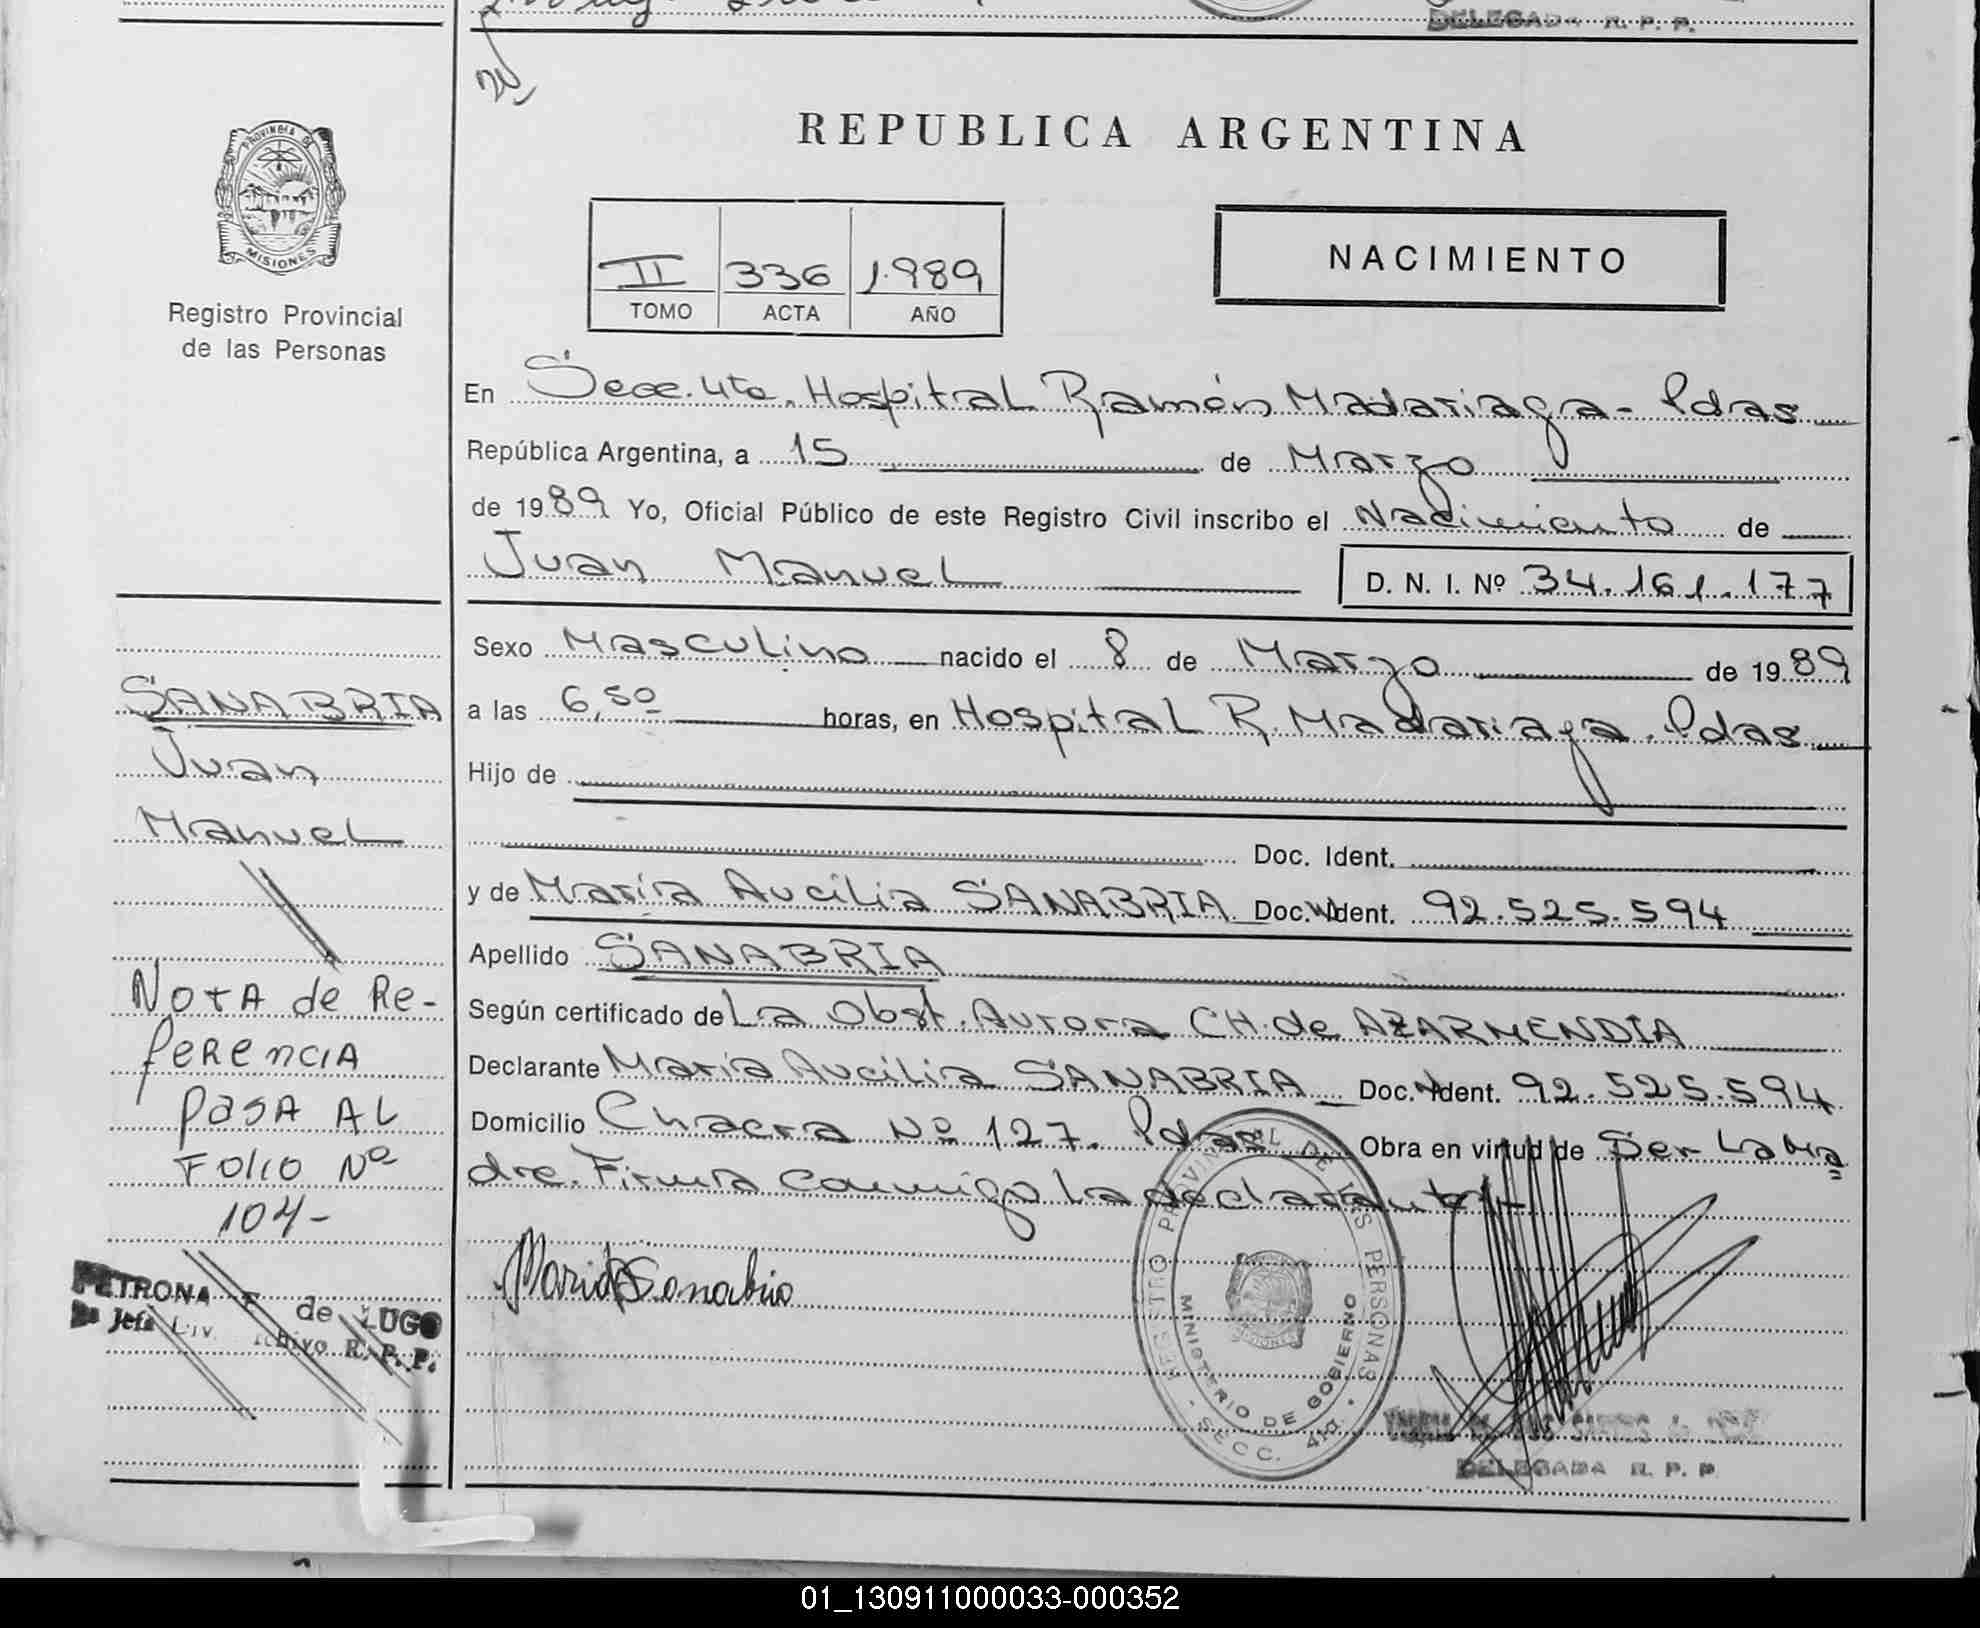 DELEGADA R. P. P.
REPUBLICA ARGENTINA
PROVINCIA DE
MISIONES
Registro Provincial
de las Personas
II 336 1.989
TOMO ACTA AÑO
NACIMIENTO
En Secc. 4ta. Hospital Ramón Madariaga - Pdas
República Argentina, a 15 de Marzo
de 1989 Yo, Oficial Público de este Registro Civil inscribo el Nacimiento de
Juan Manuel D. N. I. Nº 34.161.177
Sexo Masculino nacido el 8 de Marzo de 1989
a las 6,50 horas, en Hospital R. Madariaga. Pdas
Hijo de
Doc. Ident.
y de María Aucilia SANABRIA Doc. Ident. 92.525.594
Apellido SANABRIA
Según certificado de La Obst. Aurora CH. de AZARMENDIA
Declarante María Aucilia SANABRIA Doc. Ident. 92.525.594
Domicilio Chacra Nº 127. Pdas Obra en virtud de Ser La Ma
dre. Firma conmigo la declarante.-
SANABRIA
Juan
Manuel
NOTA de Re-
ferencia
pasa al
Folio Nº
104-
PETRONA de LUGO
Jefa Div. Archivo R. P. P.
Maria A Sanabria
REGISTRO PROVINCIAL DE LAS PERSONAS
MINISTERIO DE GOBIERNO
- SECC. 4ta. -
DELEGADA R. P. P.
01_130911000033-000352